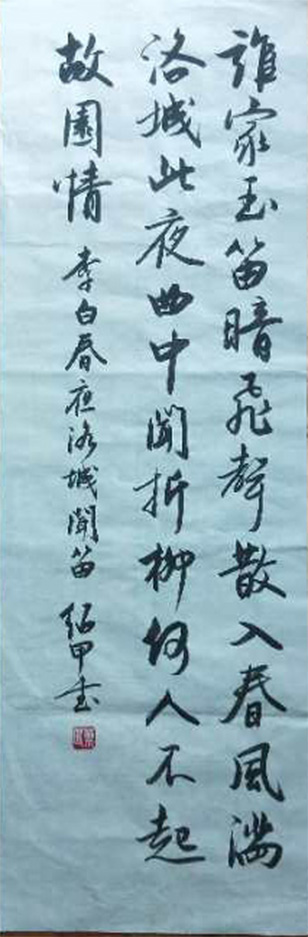 誰家玉笛暗飛聲散入春風滿
洛城此夜曲中聞折柳何人不起
故園情 李白春夜洛城聞笛 紹甲书